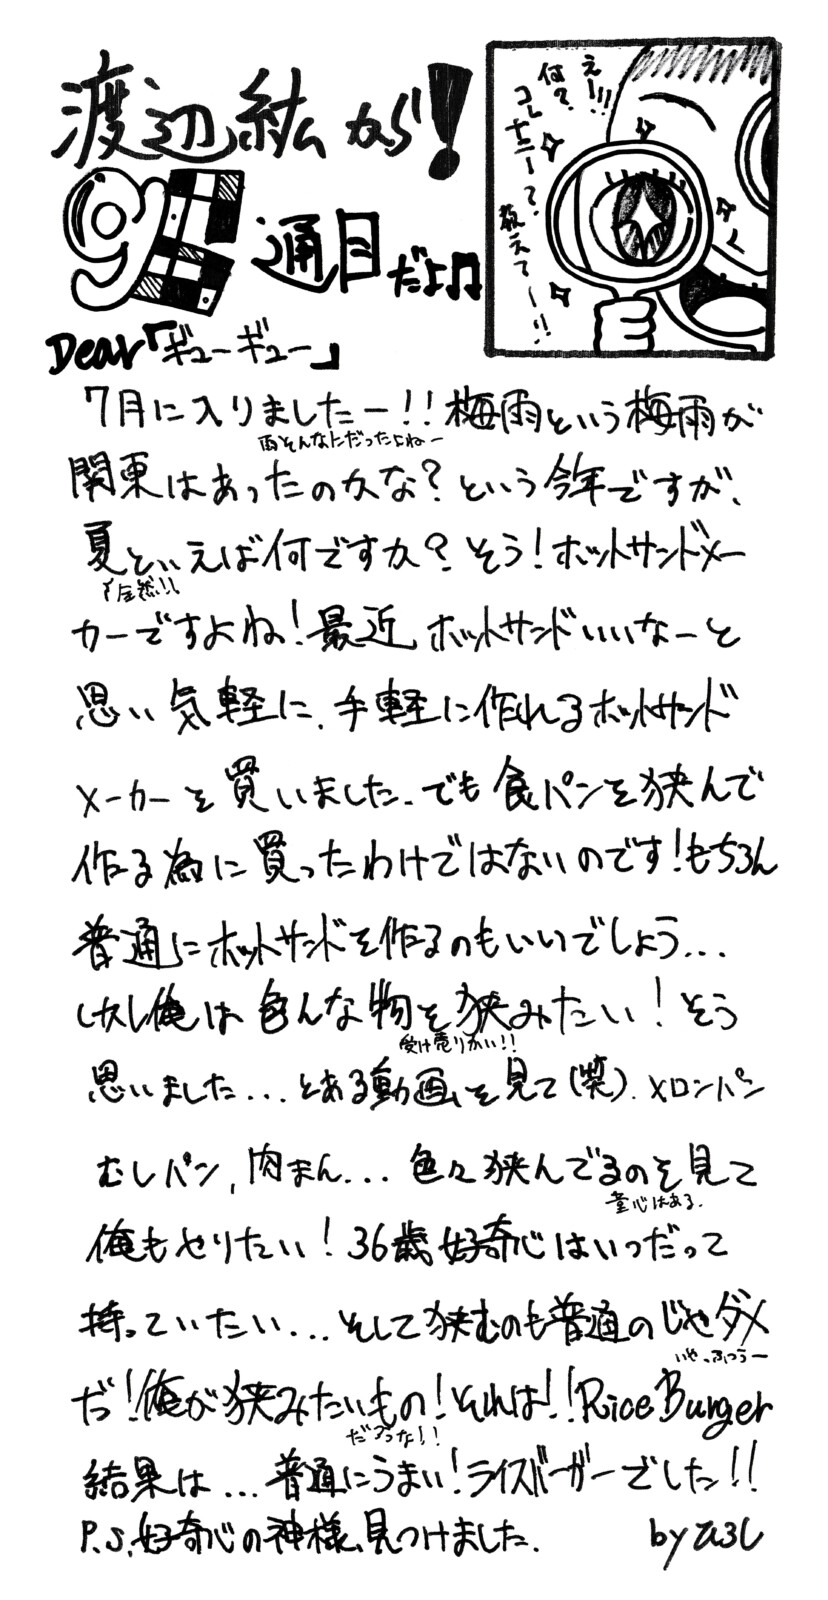 渡辺紘から!
9通目だよ♫
えー!!!
何?
コレなにー?
教えてー!!
Dear「ギューギュー」
7月に入りましたー!!梅雨という梅雨が
雨そんなにだったよねー
関東はあったのかな?という今年ですが、
夏といえば何ですか?そう!ホットサンドメー
全然!!
カーですよね!最近ホットサンドいいなーと
思い気軽に、手軽に作れるホットサンド
メーカーを買いました。でも食パンを挟んで
作る為に買ったわけではないのです!もちろん
普通にホットサンドを作るのもいいでしょう...
しかし俺は色んな物を挟みたい!そう
受け売りかい!!
思いました...とある動画を見て(笑)。メロンパン
むしパン、肉まん...色々挟んでるのを見て
童心はある。
俺もやりたい!36歳好奇心はいつだって
持っていたい...そして挟むのも普通のじゃダメ
いや、ふつうー
だ!俺が挟みたいもの!それは!!Rice Burger
だろうな!!
結果は...普通にうまい!ライスバーガーでした!!
P.S.好奇心の神様、見つけました。 by ひろし